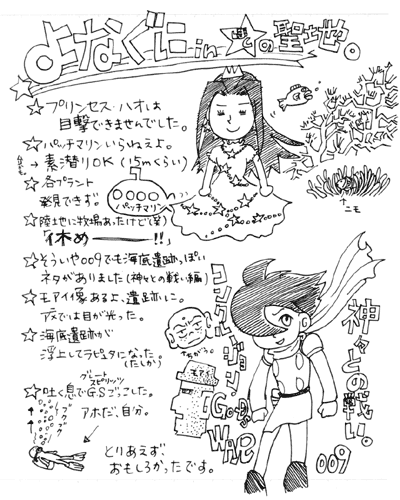 よなぐに in 星の聖地。
☆プリンセス・ハオは
目撃できませんでした。
☆パッチマリンいらねえよ。
→素潜りOK(15mくらい)
☆各プラント
発見できず。
パッチマリン
☆陸地に牧場あったけど(笑)
「休めーーー!!」
ニモ
☆そういや009でも海底遺跡っぽい
ネタがありました(神々との戦い編)
☆モアイ像あるよ、遺跡に。
アニメでは目が光った。
ちがう。
モアイ
☆海底遺跡が
浮上してラピュタになった。
(たしか)
グレートスピリッツ
☆吐く息でG.S.ごっこした。
ブクブク
アホだ、自分。
とりあえず、
おもしろかったです。
コンクルージョン
God's
WAVE
神々との戦い。
009